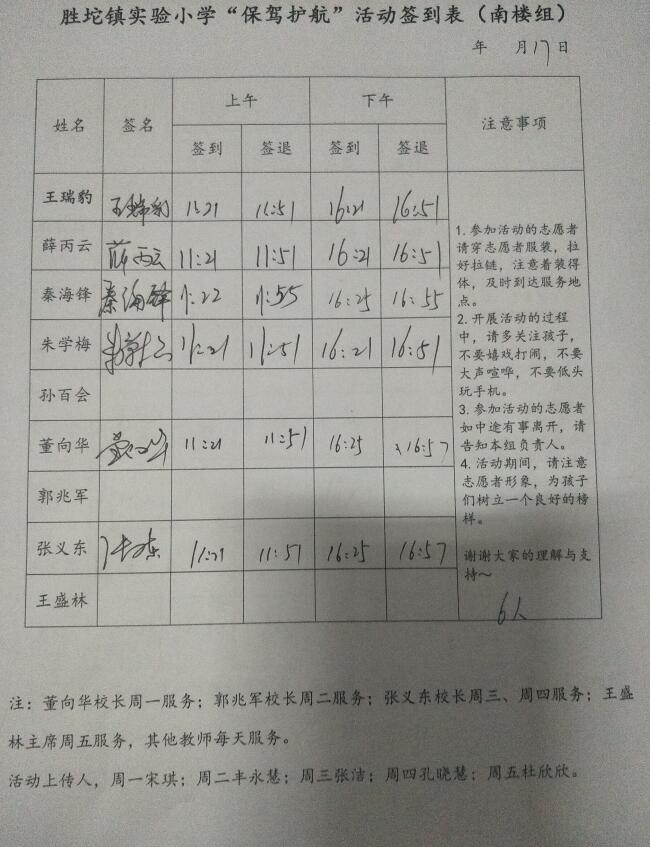 胜坨镇实验小学“保驾护航”活动签到表（南楼组）
年 月17日
姓名 签名 上午 下午 注意事项
签到 签退 签到 签退
王瑞豹 王瑞豹 11:21 11:51 16:21 16:51
薛丙云 薛丙云 11:21 11:51 16:21 16:51
秦海锋 秦海锋 11:22 11:55 16:25 16:55
朱学梅 11:21 11:51 16:21 16:51
孙百会
董向华 董向华 11:21 11:51 16:25 16:57
郭兆军
张义东 11:21 11:57 16:25 16:57
王盛林
1. 参加活动的志愿者
请穿志愿者服装，拉
好拉链，注意着装得
体，及时到达服务地
点。
2. 开展活动的过程
中，请多关注孩子，
不要嬉戏打闹，不要
大声喧哗，不要低头
玩手机。
3. 参加活动的志愿者
如中途有事离开，请
告知本组负责人。
4. 活动期间，请注意
志愿者形象，为孩子
们树立一个良好的榜
样。
谢谢大家的理解与支
持～
6人
注：董向华校长周一服务；郭兆军校长周二服务；张义东校长周三、周四服务；王盛
林主席周五服务，其他教师每天服务。
活动上传人，周一宋琪；周二丰永慧；周三张洁；周四孔晓慧；周五杜欣欣。